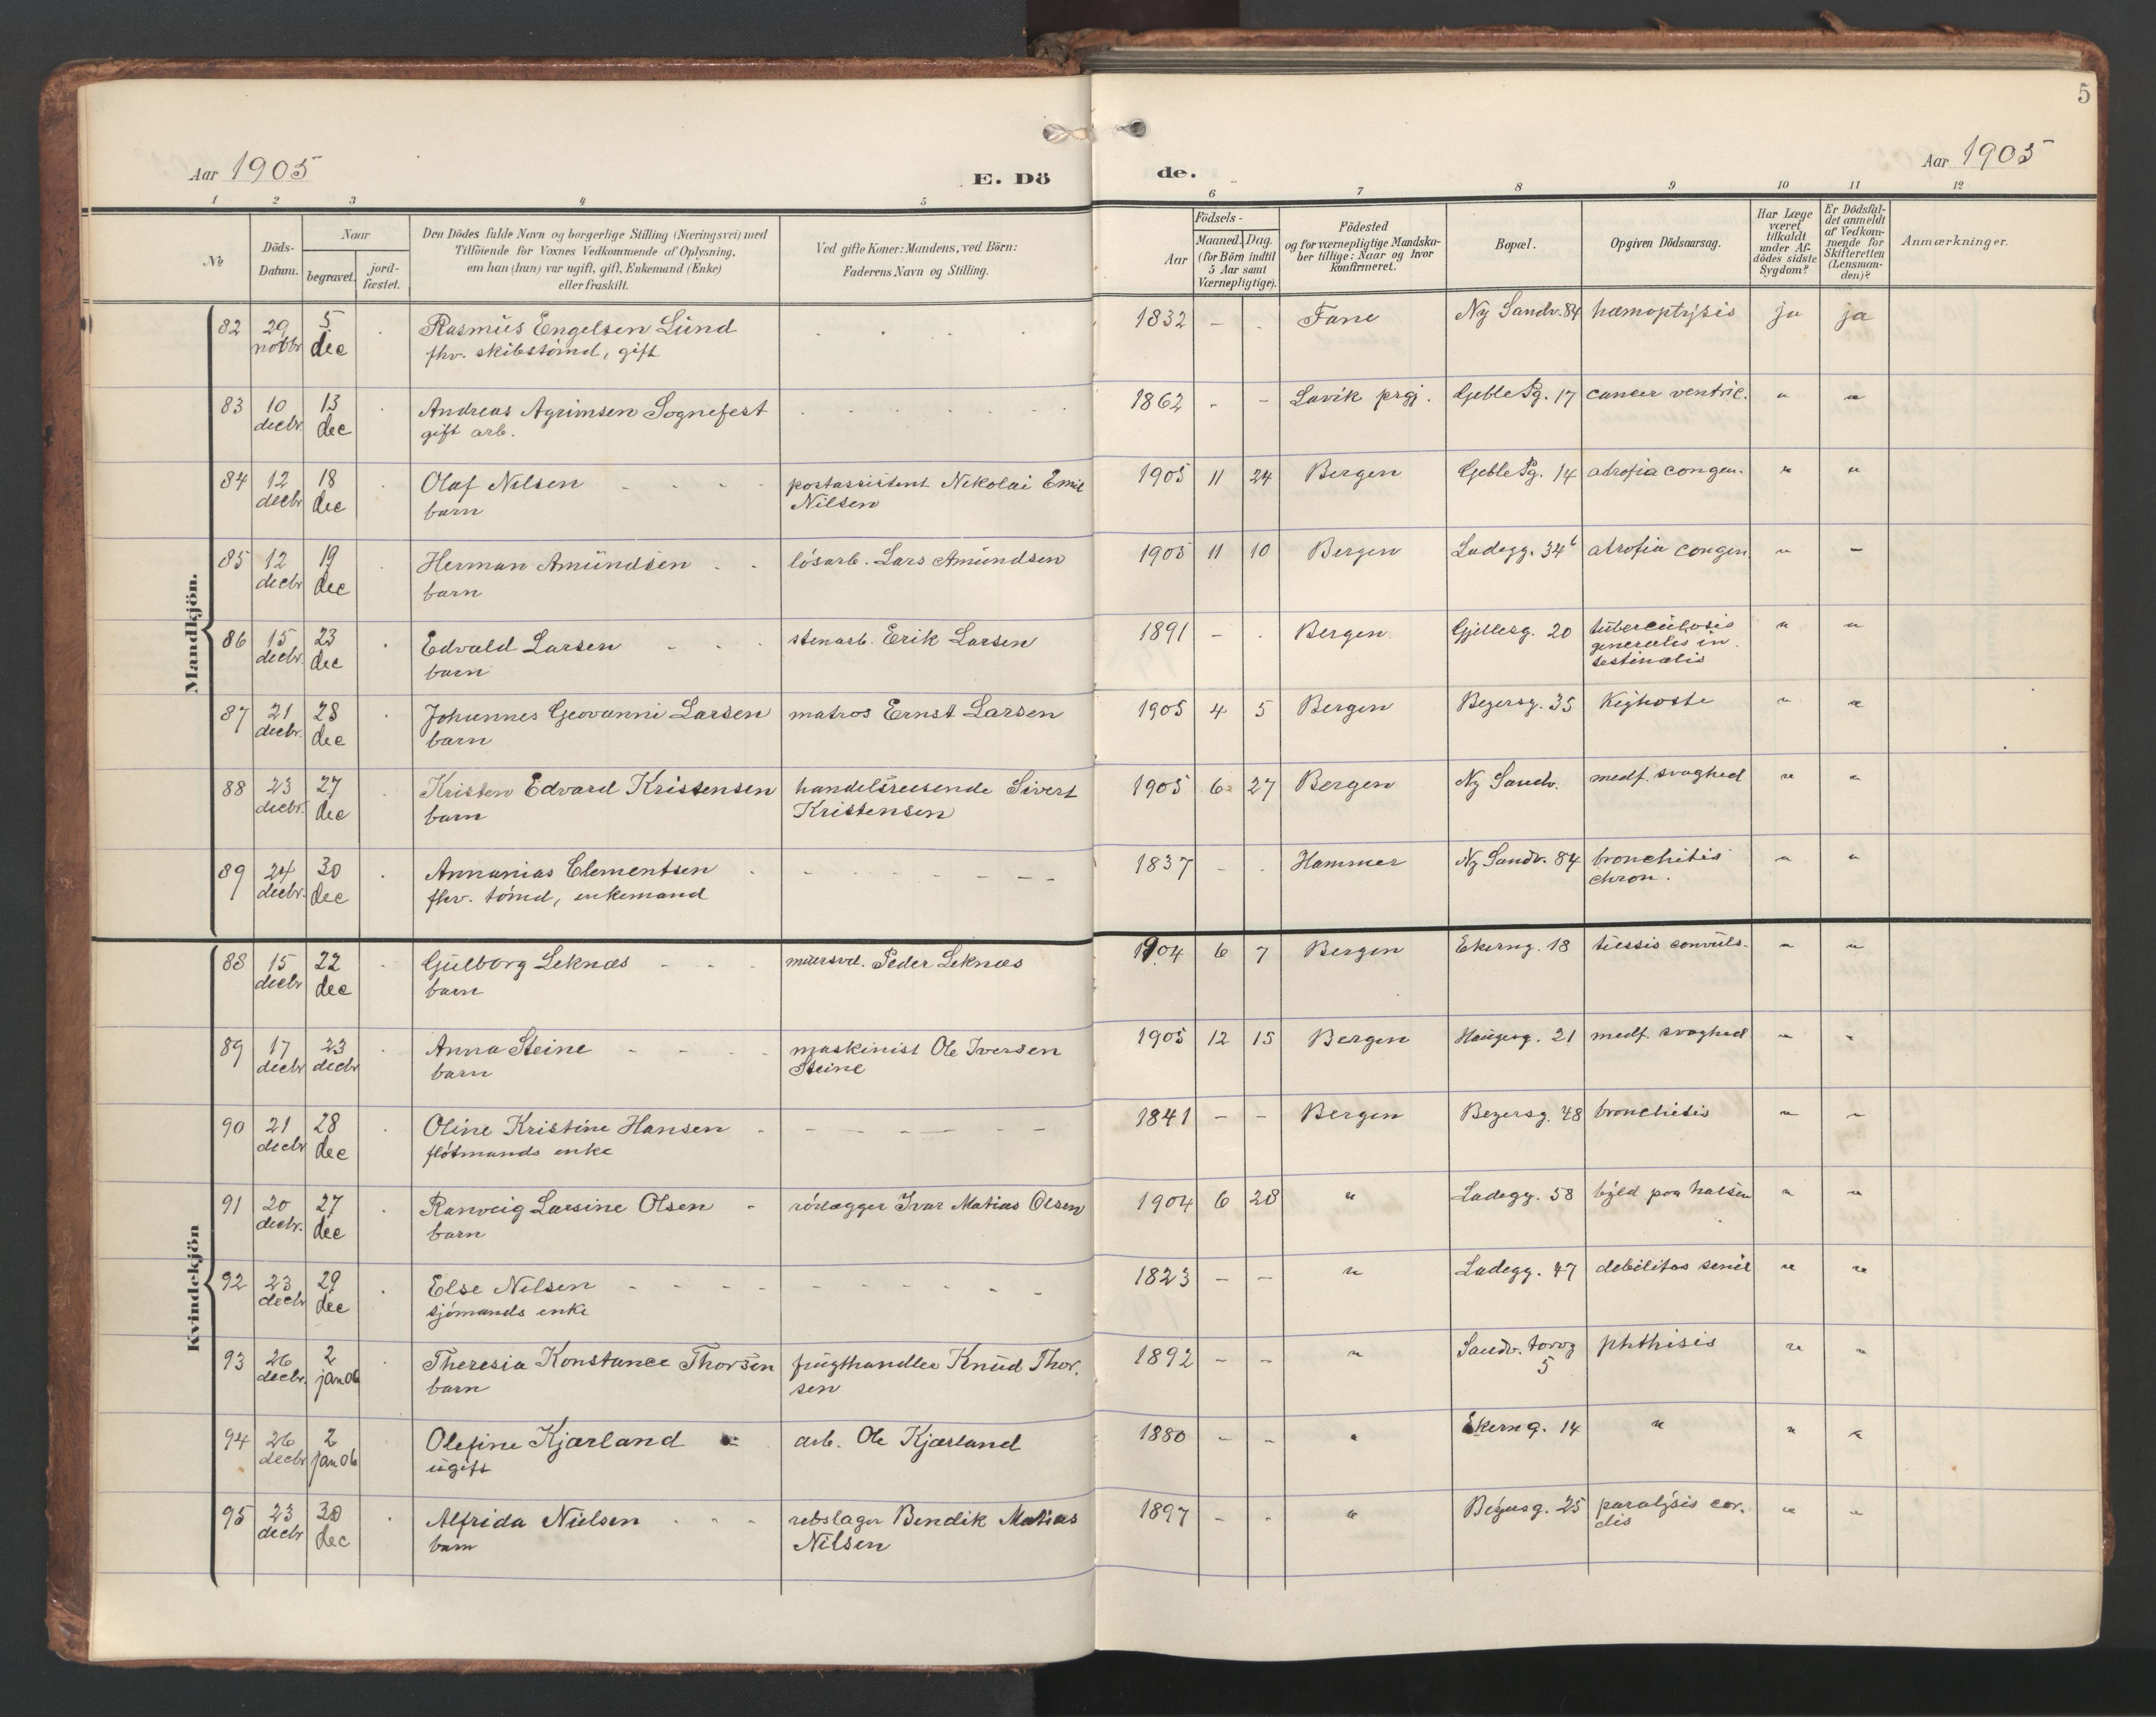 5
Aar 1905
E. Dö
de.
Aar 1905
1 2 3 4 5 6 7 8 9 10 11 12
No
Döds-
Datum.
Naar
begravet.
jord-
fæstet.
Den Dödes fulde Navn og borgerlige Stilling (Næringsvei) med
Tilföiende for Voxnes Vedkommende af Oplysning,
om han (hun) var ugift, gift, Enkemand (Enke)
eller fraskilt.
Ved gifte Koner: Mandens, ved Börn:
Faderens Navn og Stilling.
Födsels-
Aar
Maaned. Dag.
(for Börn indtil
5 Aar samt
Værnepligtige).
Födested
og for værnepligtige Mandska-
ber tillige: Naar og hvor
konfirmeret.
Bopæl.
Opgiven Dödsaarsag.
Har Læge
været
tilkaldt
under Af-
dödes sidste
Sygdom?
Er Dödsfal-
det anmeldt
af Vedkom-
mende for
Skifteretten
(Lensman-
den)?
Anmærkninger.
Mandkjön.
82 29 5 Rasmus Engelsen Lund 1832 - Fane Ny Sandv. 84 hæmoptysis ja ja
novbr dec fhv. skibstömd, gift
83 10 13 Andreas Agrimsen Sognefest 1862 - - Lavik prgj. Geble Pg. 17 cancer ventric. " "
decbr dec gift arb.
84 12 18 Olaf Nilsen postassistent Nikolai Emil 1905 11 24 Bergen Geble Pg. 14 atrofia congen. " "
decbr dec barn Nilsen
85 12 19 Herman Amundsen lösarb. Lars Amundsen 1905 11 10 Bergen Ladegg. 34b atrofia congen " "
decbr dec barn
86 15 23 Edvald Larsen stenarb. Erik Larsen 1891 - Bergen Gjellesg. 20 tuberculosis " "
decbr. dec barn generalis in
testinalis
87 21 28 Johannes Geovanni Larsen matros Ernst Larsen 1905 4 5 Bergen Beyersg. 35 Kighoste " "
decbr. dec barn
88 23 27 Kristen Edvard Kristensen handelsreesende Sivert 1905 6 27 Bergen Ny Sandv. medf. svaghed " "
decbr. dec barn Kristensen
89 24 30 Annanias Clementsen 1837 - Hammer Ny Sandv. 84 bronchitis " "
decbr. dec fhv. tömd, enkemand chron.
Kvindekjön
88 15 22 Gulborg Leknæs Peder Leknæs 1904 6 7 Bergen Ekerng. 18 tussis convuls. " "
decbr dec barn
89 17 23 Anna Steine maskinist Ole Iversen 1905 12 15 Bergen Haugeg. 21 medf. svaghed " "
decbr decbr barn Steine
90 21 28 Oline Kristine Hansen 1841 - - Bergen Beyersg. 48 bronchitis " "
decbr dec flötmands enke
91 20 27 Ranveig Larsine Olsen rörlægger Ivar Matias Olsen 1904 6 28 " Ladegg. 58 byld paa halsen " "
decbr. dec barn
92 23 29 Else Nilsen 1823 - - " Ladegg. 47 debilitas senil " "
decbr dec sjömands enke
93 26 2 Theresia Konstance Thorsen frugthandler Knud Thor. 1892 - - " Sandv. torvg phthisis " "
decbr. jan 06 barn sen 5
94 26 2 Olefine Kjærland arb. Ole Kjærland 1880 - - " Ekerng. 14 " " "
decbr jan 06 ugift
95 23 30 Alfrida Nielsen rebslager Bendik Matias 1897 - - " Beyersg. 25 paralysis cor. " "
decbr dec barn Nilsen dis